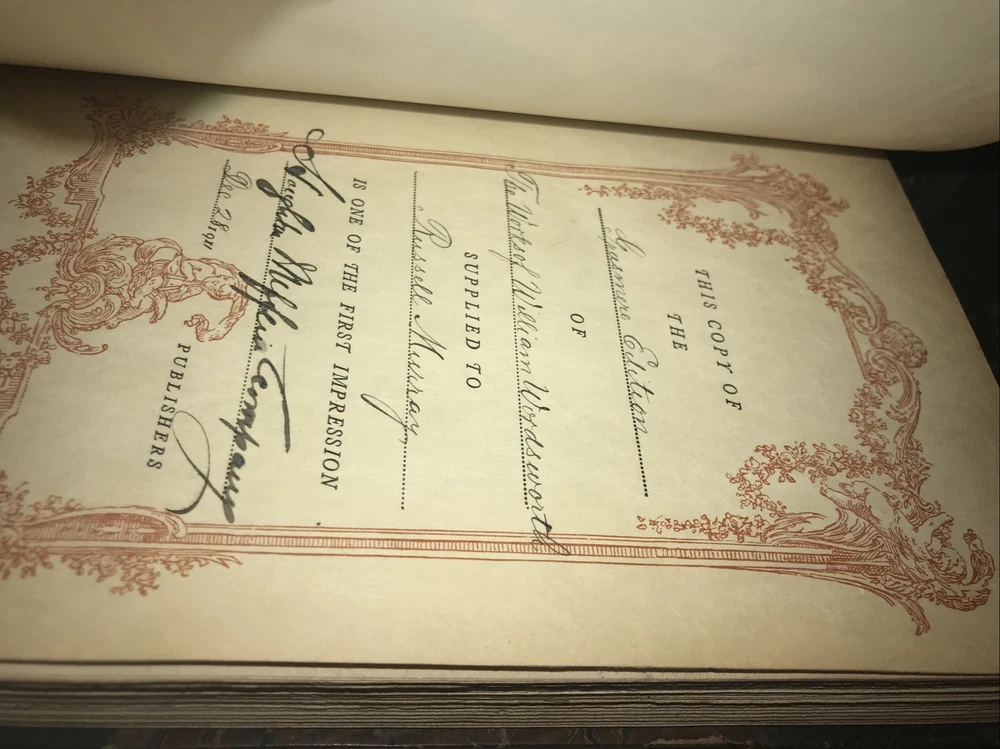 THIS COPY OF
THE
Grasmere Edition
OF
The Works of William Wordsworth
SUPPLIED TO
Russell Murray
IS ONE OF THE FIRST IMPRESSION
Houghton Mifflin Company
Dec 28 1911
PUBLISHERS